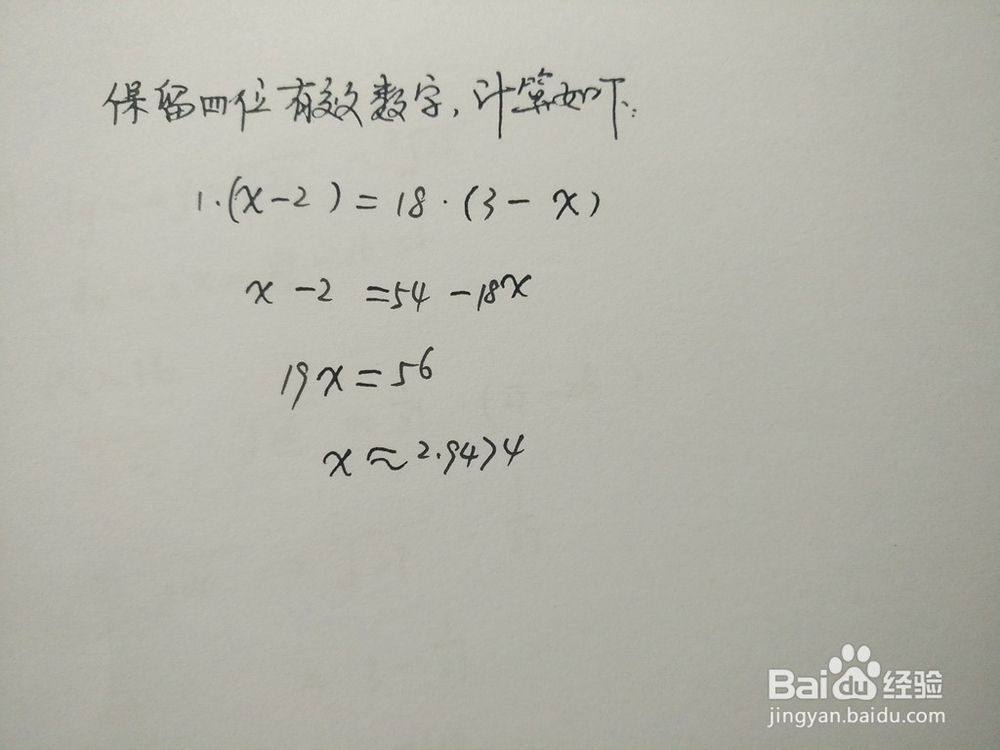 保留四位有效数字，计算如下：
1·(x-2)=18·(3-x)
x-2=54-18x
19x=56
x≈2.9474
Baidu经验
jingyan.baidu.com